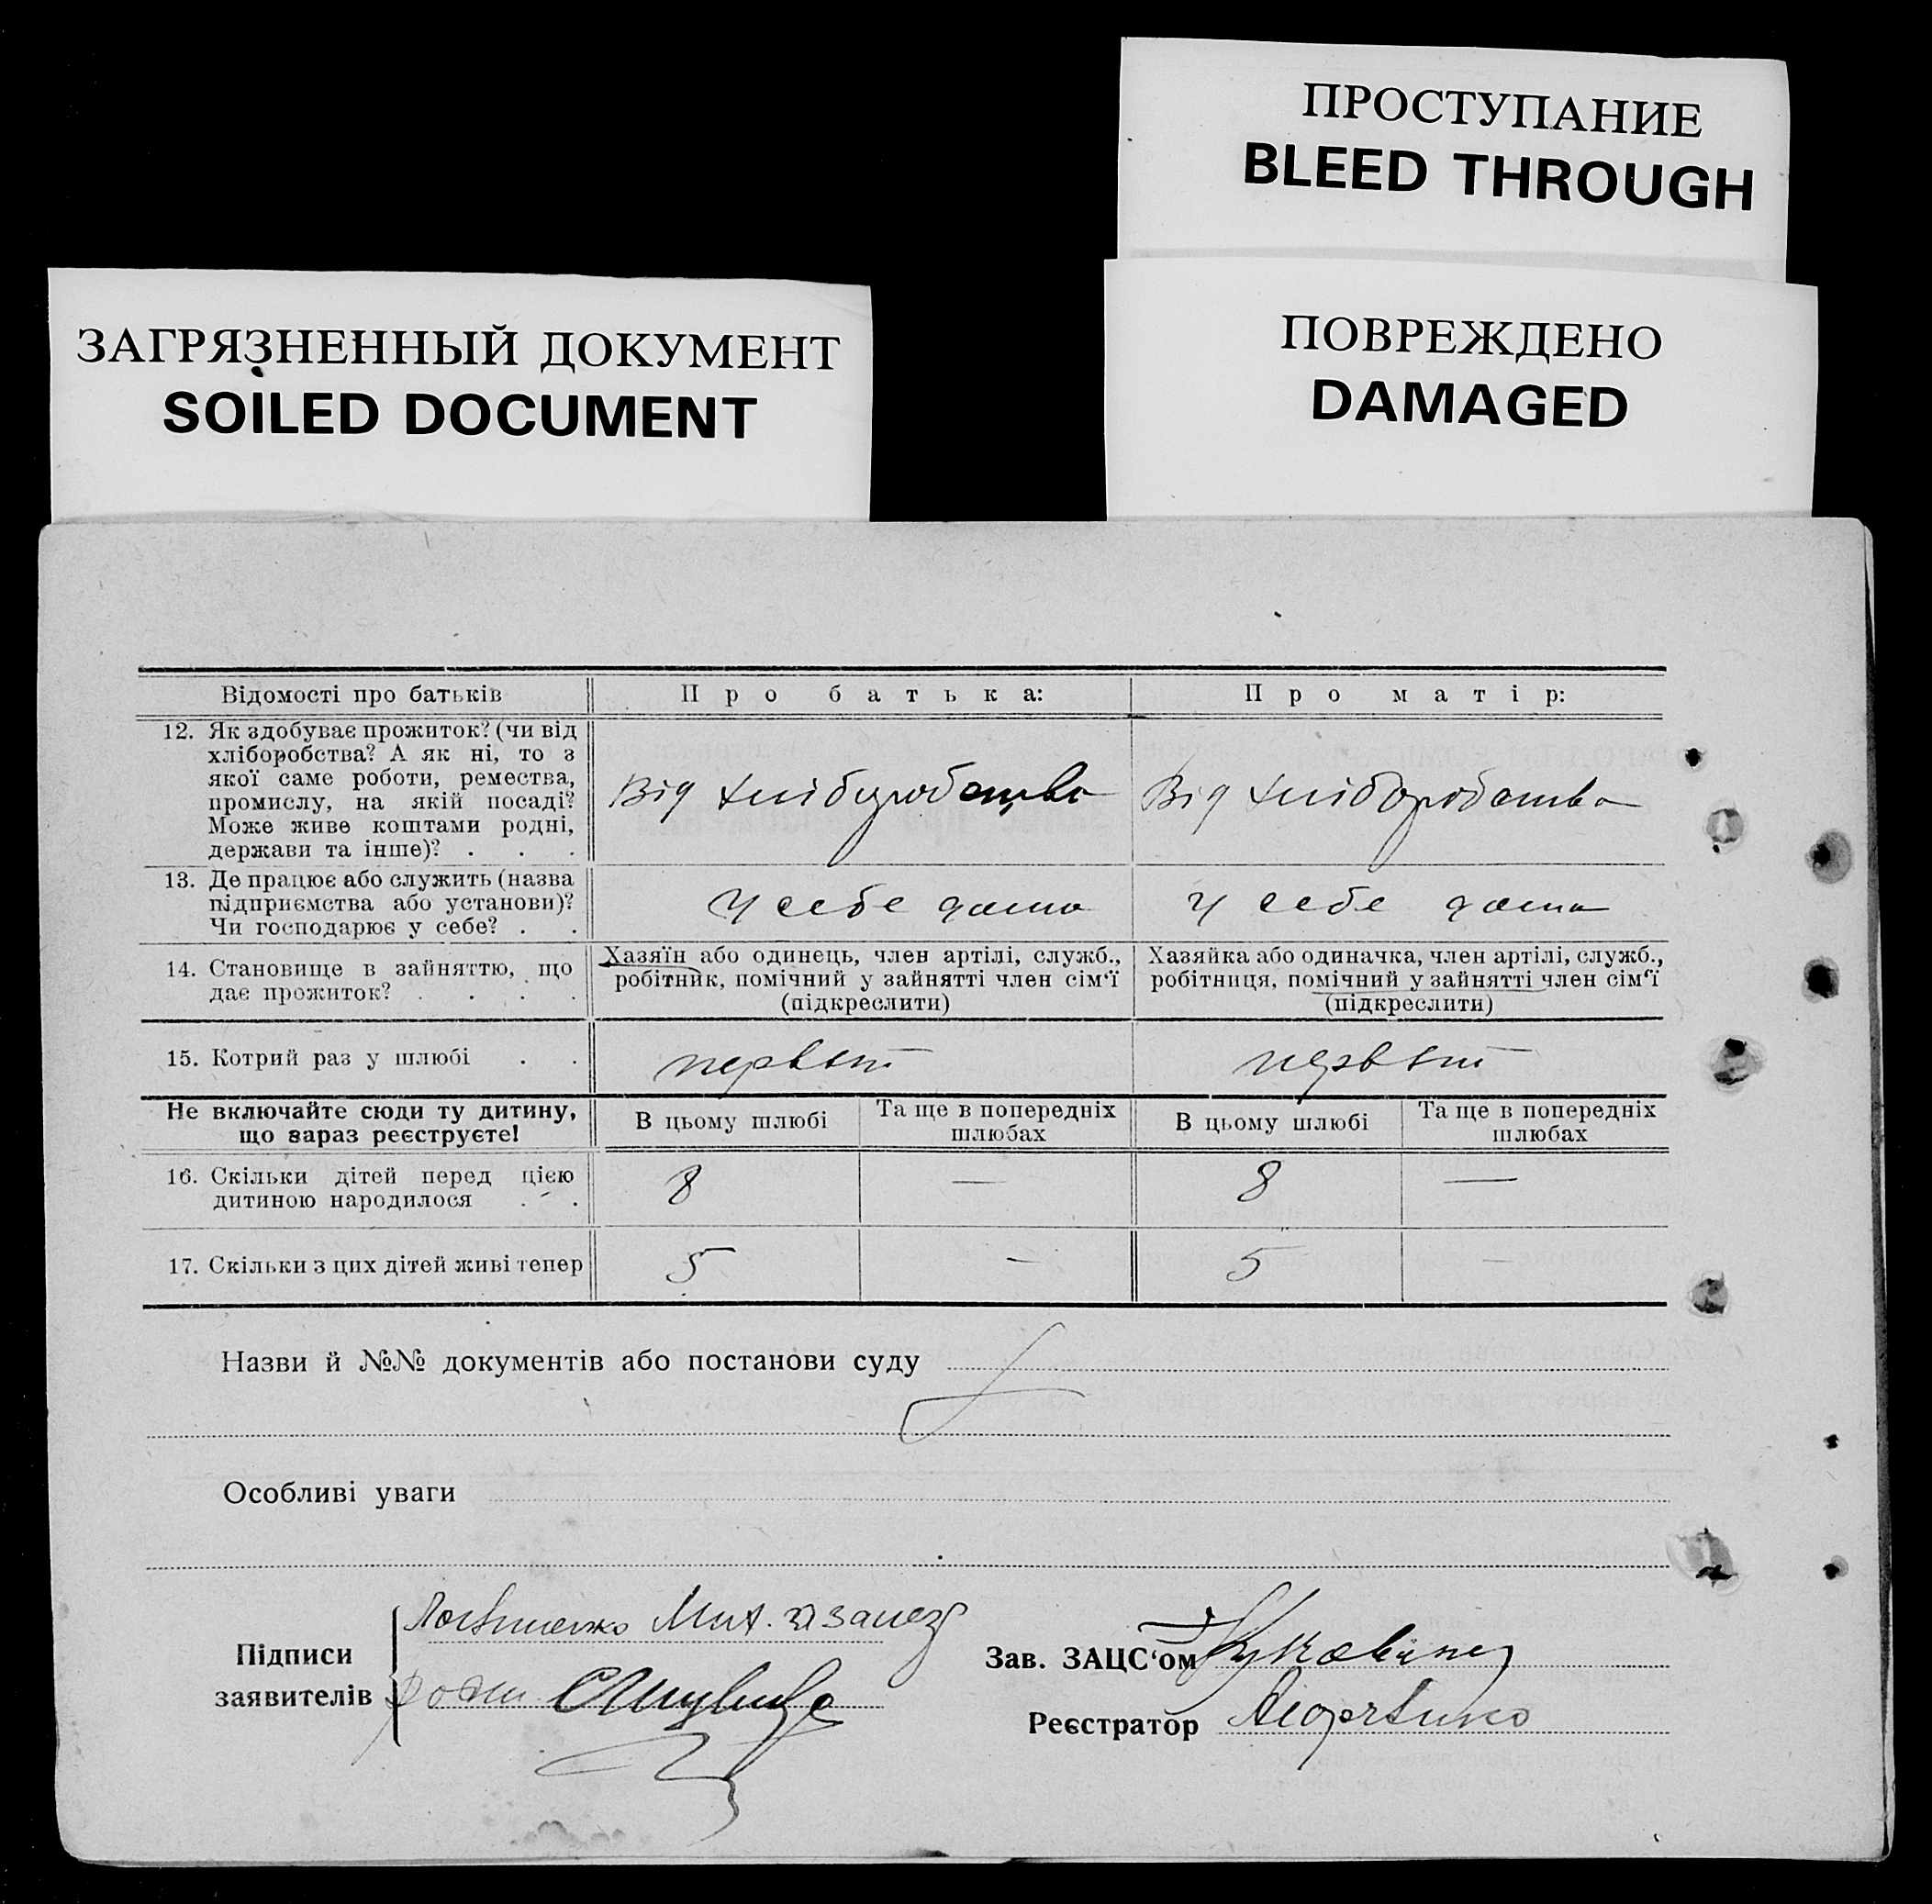 ПРОСТУПАНИЕ
BLEED THROUGH
ЗАГРЯЗНЕННЫЙ ДОКУМЕНТ
SOILED DOCUMENT
ПОВРЕЖДЕНО
DAMAGED
Відомості про батьків
Про батька:
Про матір:
12. Як здобуває прожиток? (чи від
хліборобства? А як ні, то з
якої саме роботи, ремества,
промислу, на якій посаді?
Може живе коштами родні,
держави та інше)? . . .
Від хліборобства
Від хліборобства
13. Де працює або служить (назва
підприємства або установи)?
Чи господарює у себе? . .
У себе дома
У себе дома
14. Становище в зайняттю, що
дає прожиток? . . . .
Хазяїн або одинець, член артілі, служб.,
робітник, помічний у зайнятті член сім'ї
(підкреслити)
Хазяйка або одиначка, член артілі, служб.,
робітниця, помічний у зайнятті член сім'ї
(підкреслити)
15. Котрий раз у шлюбі . .
первый
первый
Не включайте сюди ту дитину,
що зараз реєструєте!
В цьому шлюбі
Та ще в попередніх
шлюбах
В цьому шлюбі
Та ще в попередніх
шлюбах
16. Скільки дітей перед цією
дитиною народилося . .
8 —
8 —
17. Скільки з цих дітей живі тепер
5 —
5 —
Назви й №№ документів або постанови суду
Особливі уваги
Підписи
заявителів
Зав. ЗАЦС'ом
Реєстратор